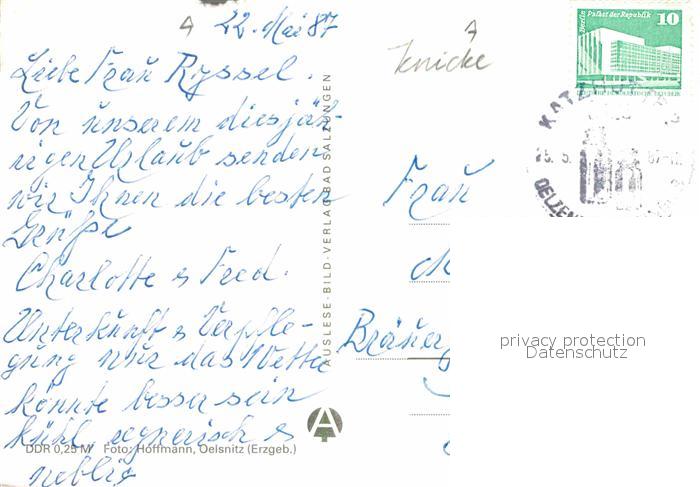 22. Mai 87
Liebe Frau Ryssel.
Von unserem diesjäh-
rigen Urlaub senden
wir Ihnen die besten
Grüße
Charlotte & Fred.
Unterkunft & Verpfle-
gung nur das Wetter
könnte besser sein
kühl, regnerisch &
neblig
DDR 0,25 M Foto: Hoffmann, Oelsnitz (Erzgeb.)
AUSLESE-BILD-VERLAG BAD SALZUNGEN
knicke
Berlin Palast der Republik
10
Frau
Bräuer
privacy protection
Datenschutz